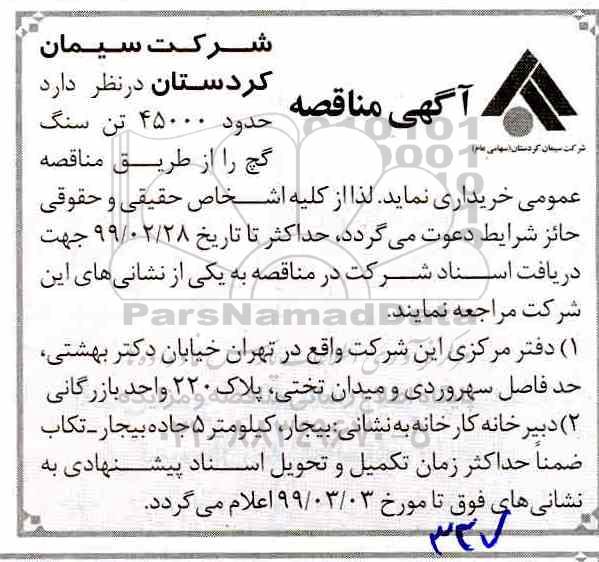 شرکت سیمان
کردستان درنظر دارد
آگهی مناقصه
حدود ۴۵۰۰۰ تن سنگ
شرکت سیمان کردستان (سهامی عام)
گچ را از طریق مناقصه
عمومی خریداری نماید. لذا از کلیه اشخاص حقیقی و حقوقی
حائز شرایط دعوت می گردد، حداکثر تا تاریخ ۹۹/۰۲/۲۸ جهت
دریافت اسناد شرکت در مناقصه به یکی از نشانی‌های این
شرکت مراجعه نمایند.
ParsNamadData
۱) دفتر مرکزی این شرکت واقع در تهران خیابان دکتر بهشتی،
حد فاصل سهروردی و میدان تختی، پلاک ۲۲۰ واحد بازرگانی
۲) دبیرخانه کارخانه به نشانی: بیجار، کیلومتر ۵ جاده بیجار ـ تکاب
ضمناً حداکثر زمان تکمیل و تحویل اسناد پیشنهادی به
نشانی‌های فوق تا مورخ ۹۹/۰۳/۰۳ اعلام می گردد.